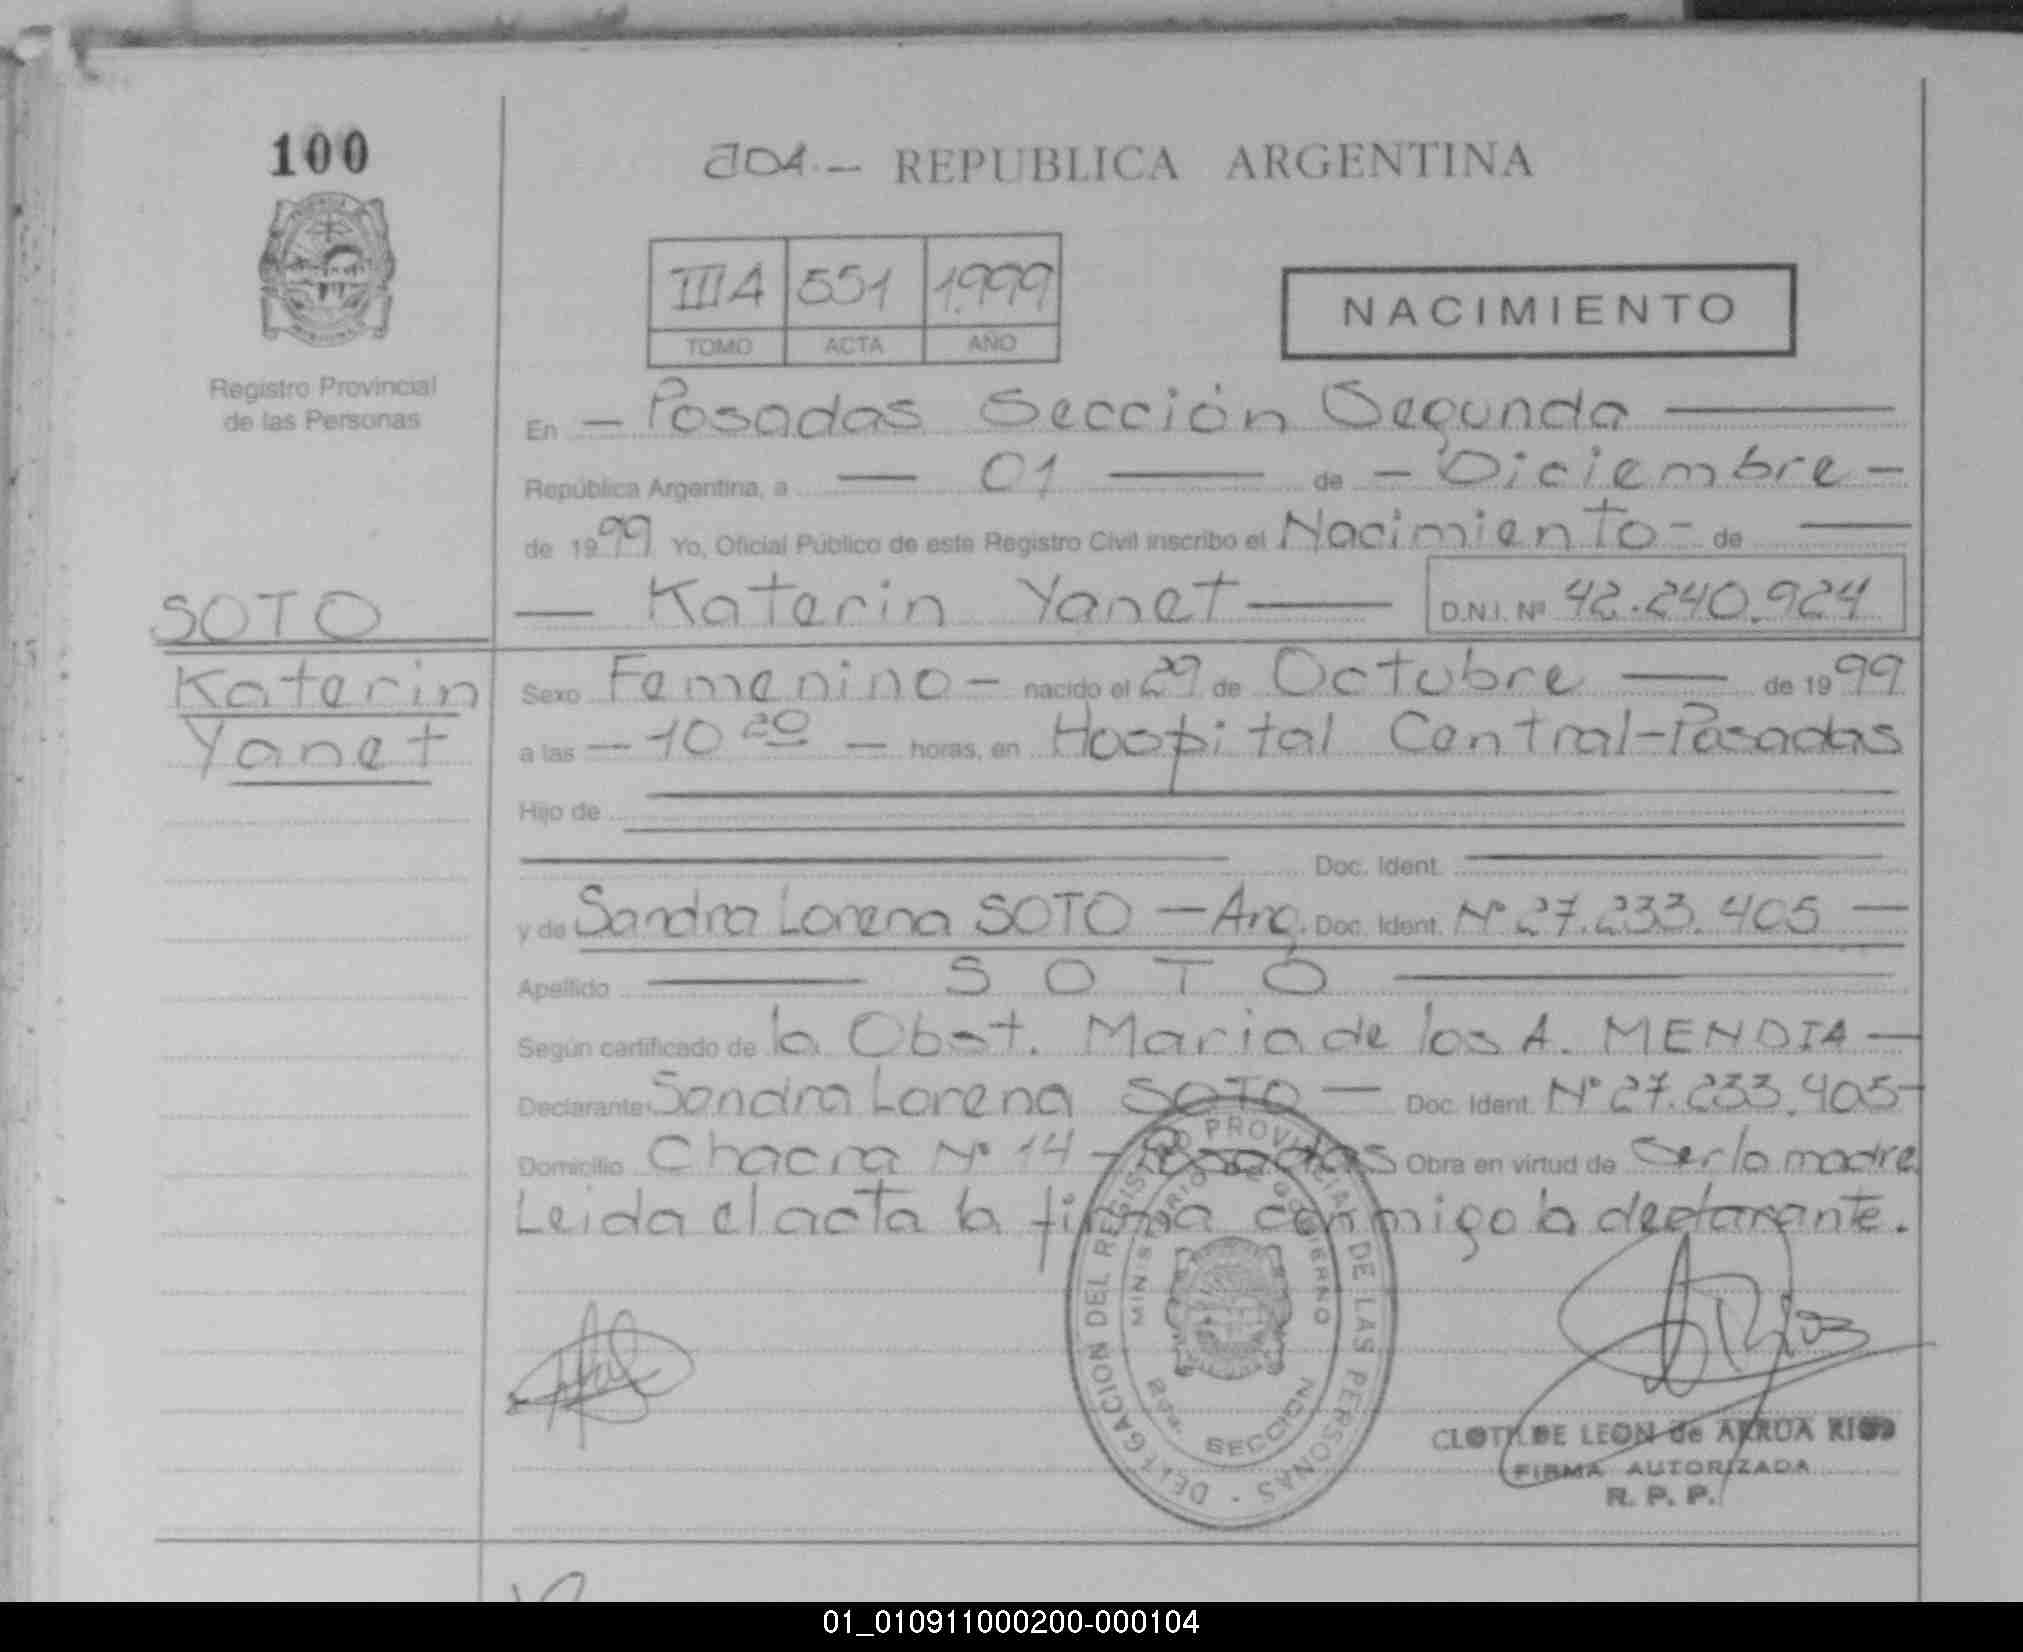 100
REPUBLICA ARGENTINA
IIIA 551 1.999
TOMO ACTA AÑO
NACIMIENTO
Registro Provincial
de las Personas
En — Posadas Sección Segunda —
República Argentina, a — 01 — de — Diciembre —
de 1999 Yo, Oficial Público de este Registro Civil inscribo el Nacimiento - de —
— Katerin Yanet — D.N.I. Nº 42.240.924
SOTO
Katerin
Yanet
Sexo Femenino — nacido el 29 de Octubre — de 1999
a las — 10 20 — horas, en Hospital Central - Posadas
Hijo de
Doc. Ident.
y de Sandra Lorena SOTO — Arg. Doc. Ident. Nº 27.233.405 —
Apellido — SOTO —
Según certificado de la Obst. Maria de los A. MENDIA —
Declarante Sandra Lorena SOTO — Doc. Ident. Nº 27.233.405 -
Domicilio Chacra Nº 14 - Posadas Obra en virtud de ser la madre
Leida el acta la firma conmigo la declarante.
DELEGACION DEL REGISTRO PROVINCIAL DE LAS PERSONAS
MINISTERIO DE GOBIERNO
2da. SECCION
CLOTILDE LEON de ARRUA RIOS
FIRMA AUTORIZADA
R. P. P.
01_010911000200-000104